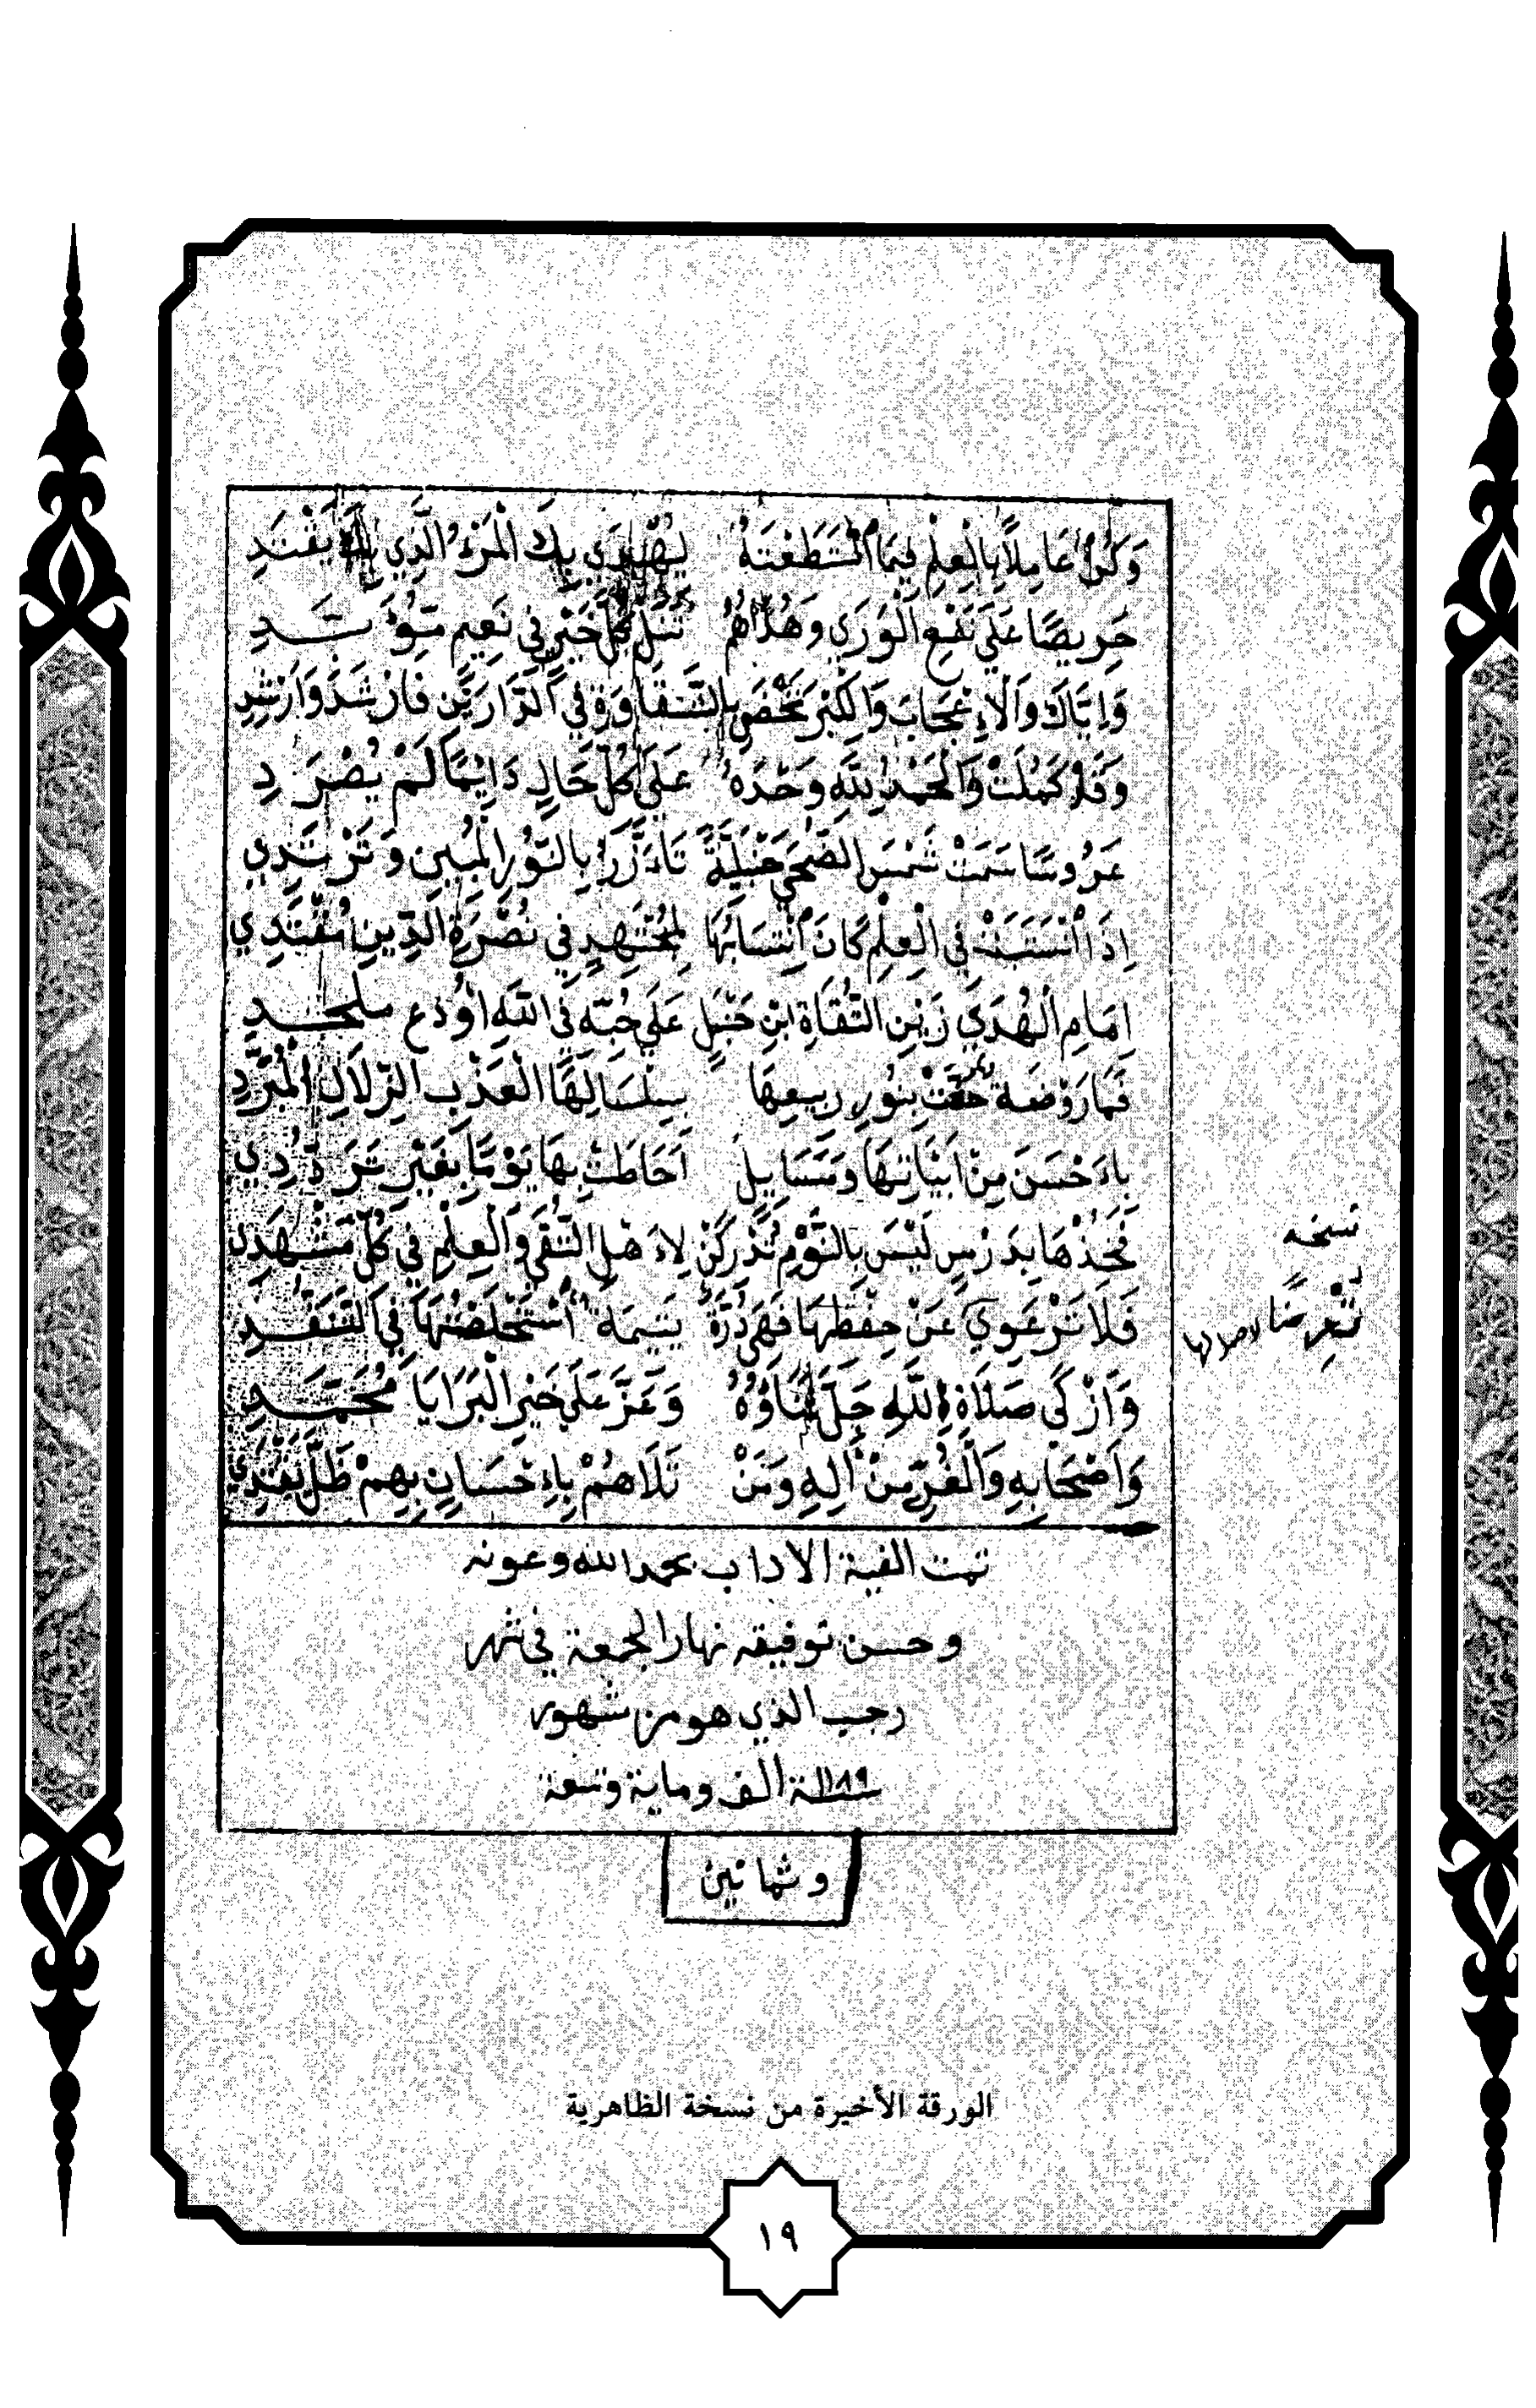 وَكُنْ عَامِلًا بِالْعِلْمِ فِيمَا اسْتَطَعْتَهُ لِيُهْدَي بِكَ الْمَرْءُ الَّذِي بِكَ يَقْتَدِ
حَرِيصًا عَلَي نَفْعِ الْوَرَي وَهُدَاهُمُ تَنَلْ كُلَّ خَيْرٍ فِي نَعِيمٍ مُؤَبَّدِ
وَإِيَّاكَ وَالْإِعْجَابَ وَالْكِبْرَ تَحْضَ بِالسَّعَادَةِ فِي الدَّارَيْنِ فَارْشُدْ وَارْشِدِ
وَقَدْ كَمُلَتْ وَالْحَمْدُ لِلَّهِ وَحْدَهُ عَلَي كُلِّ حَالٍ دَائِمًا لَمْ يُصَرَّدِ
عَرُوسًا سَمَتْ شَمْسَ الضُّحَي حَنْبَلِيَّةً تَأَزَّرُ بِالنُّورِ الْمُبِينِ وَتَرْتَدِي
إِذَا انْتَسَبَتْ فِي الْعِلْمِ كَانَ انْتِسَابُهَا لِمُجْتَهِدٍ فِي نُصْرَةِ الدِّينِ مُقْتَدِي
إِمَامِ الْهُدَي زَيْنِ التُّقَاةِ ابْنِ حَنْبَلٍ عَلَي حُبِّهِ فِي اللَّهِ أُودَعُ مَلْحَدِ
فَمَا رَوْضَة حُفَّتْ بِنُورِ رَبِيعِهَا بِسَلْسَالِهَا الْعَذْبِ الزُّلَالِ الْمُبَرَّدِ
بِأَحْسَنَ مِنْ أَبْيَاتِهَا وَمَسَايِلٍ أَحَاطَتْ بِهَا يَوْمًا بِغَيْرِ تَرَدُّدِي
فَخُذْهَا بِدَرْسٍ لَيْسَ بِالنَّوْمِ تُدْرَكَنْ لِأَهْلِ التُّقَي وَالْعِلْمِ فِي كُلِّ مَشْهَدِ
فَلَا تَرْعَوِي عَنْ حِفْظِهَا فَهْيَ دُرَّةٌ يَتِيمَة اسْتَخْلَصْتُهَا فِي التَّنَقُّدِ
وَأَزْكَى صَلَاةِ اللَّهِ جَلَّ ثَنَاؤُهُ وَعَزَّ عَلَي خَيْرِ الْبَرَايَا مُحَمَّدِ
وَأَصْحَابِهِ وَالْغُرِّ مِنْ آلِهِ وَمَنْ تَلَاهُمْ بِإِحْسَانٍ بِهِمْ ظَلَّ يَقْتَدِي
نسخه
تمت الفية الاداب بحمد الله وعونه
وحسن توفيقه نهار الجمعة في شهر
رجب الذي هو من شهور
سنة ١١٨٩ الف وماية وتسعة
وثمانين
الورقة الأخيرة من نسخة الظاهرية
١٩